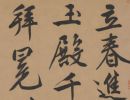 立春進
玉殿千
拜冕